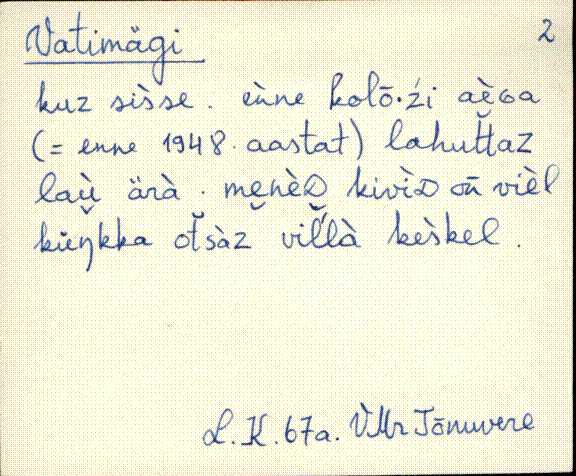 Vatimägi
2
kuz sìsse . eǹne kolō·źi aèɢa
(= enne 1948. aastat) lahut̆t̆az
laù ärà . me̬nèᴅ kivìᴅ oñ vièl
küŋ̆kka ot̆sàz vil̆l̆à kèskel .
L.K. 67a. VMr Tõnuvere